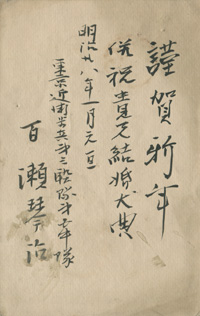 謹賀新年
併祝貴兄結婚大典
明治廿八年一月元旦
東京近衛歩兵第三聯隊第七中隊
百瀬琴治